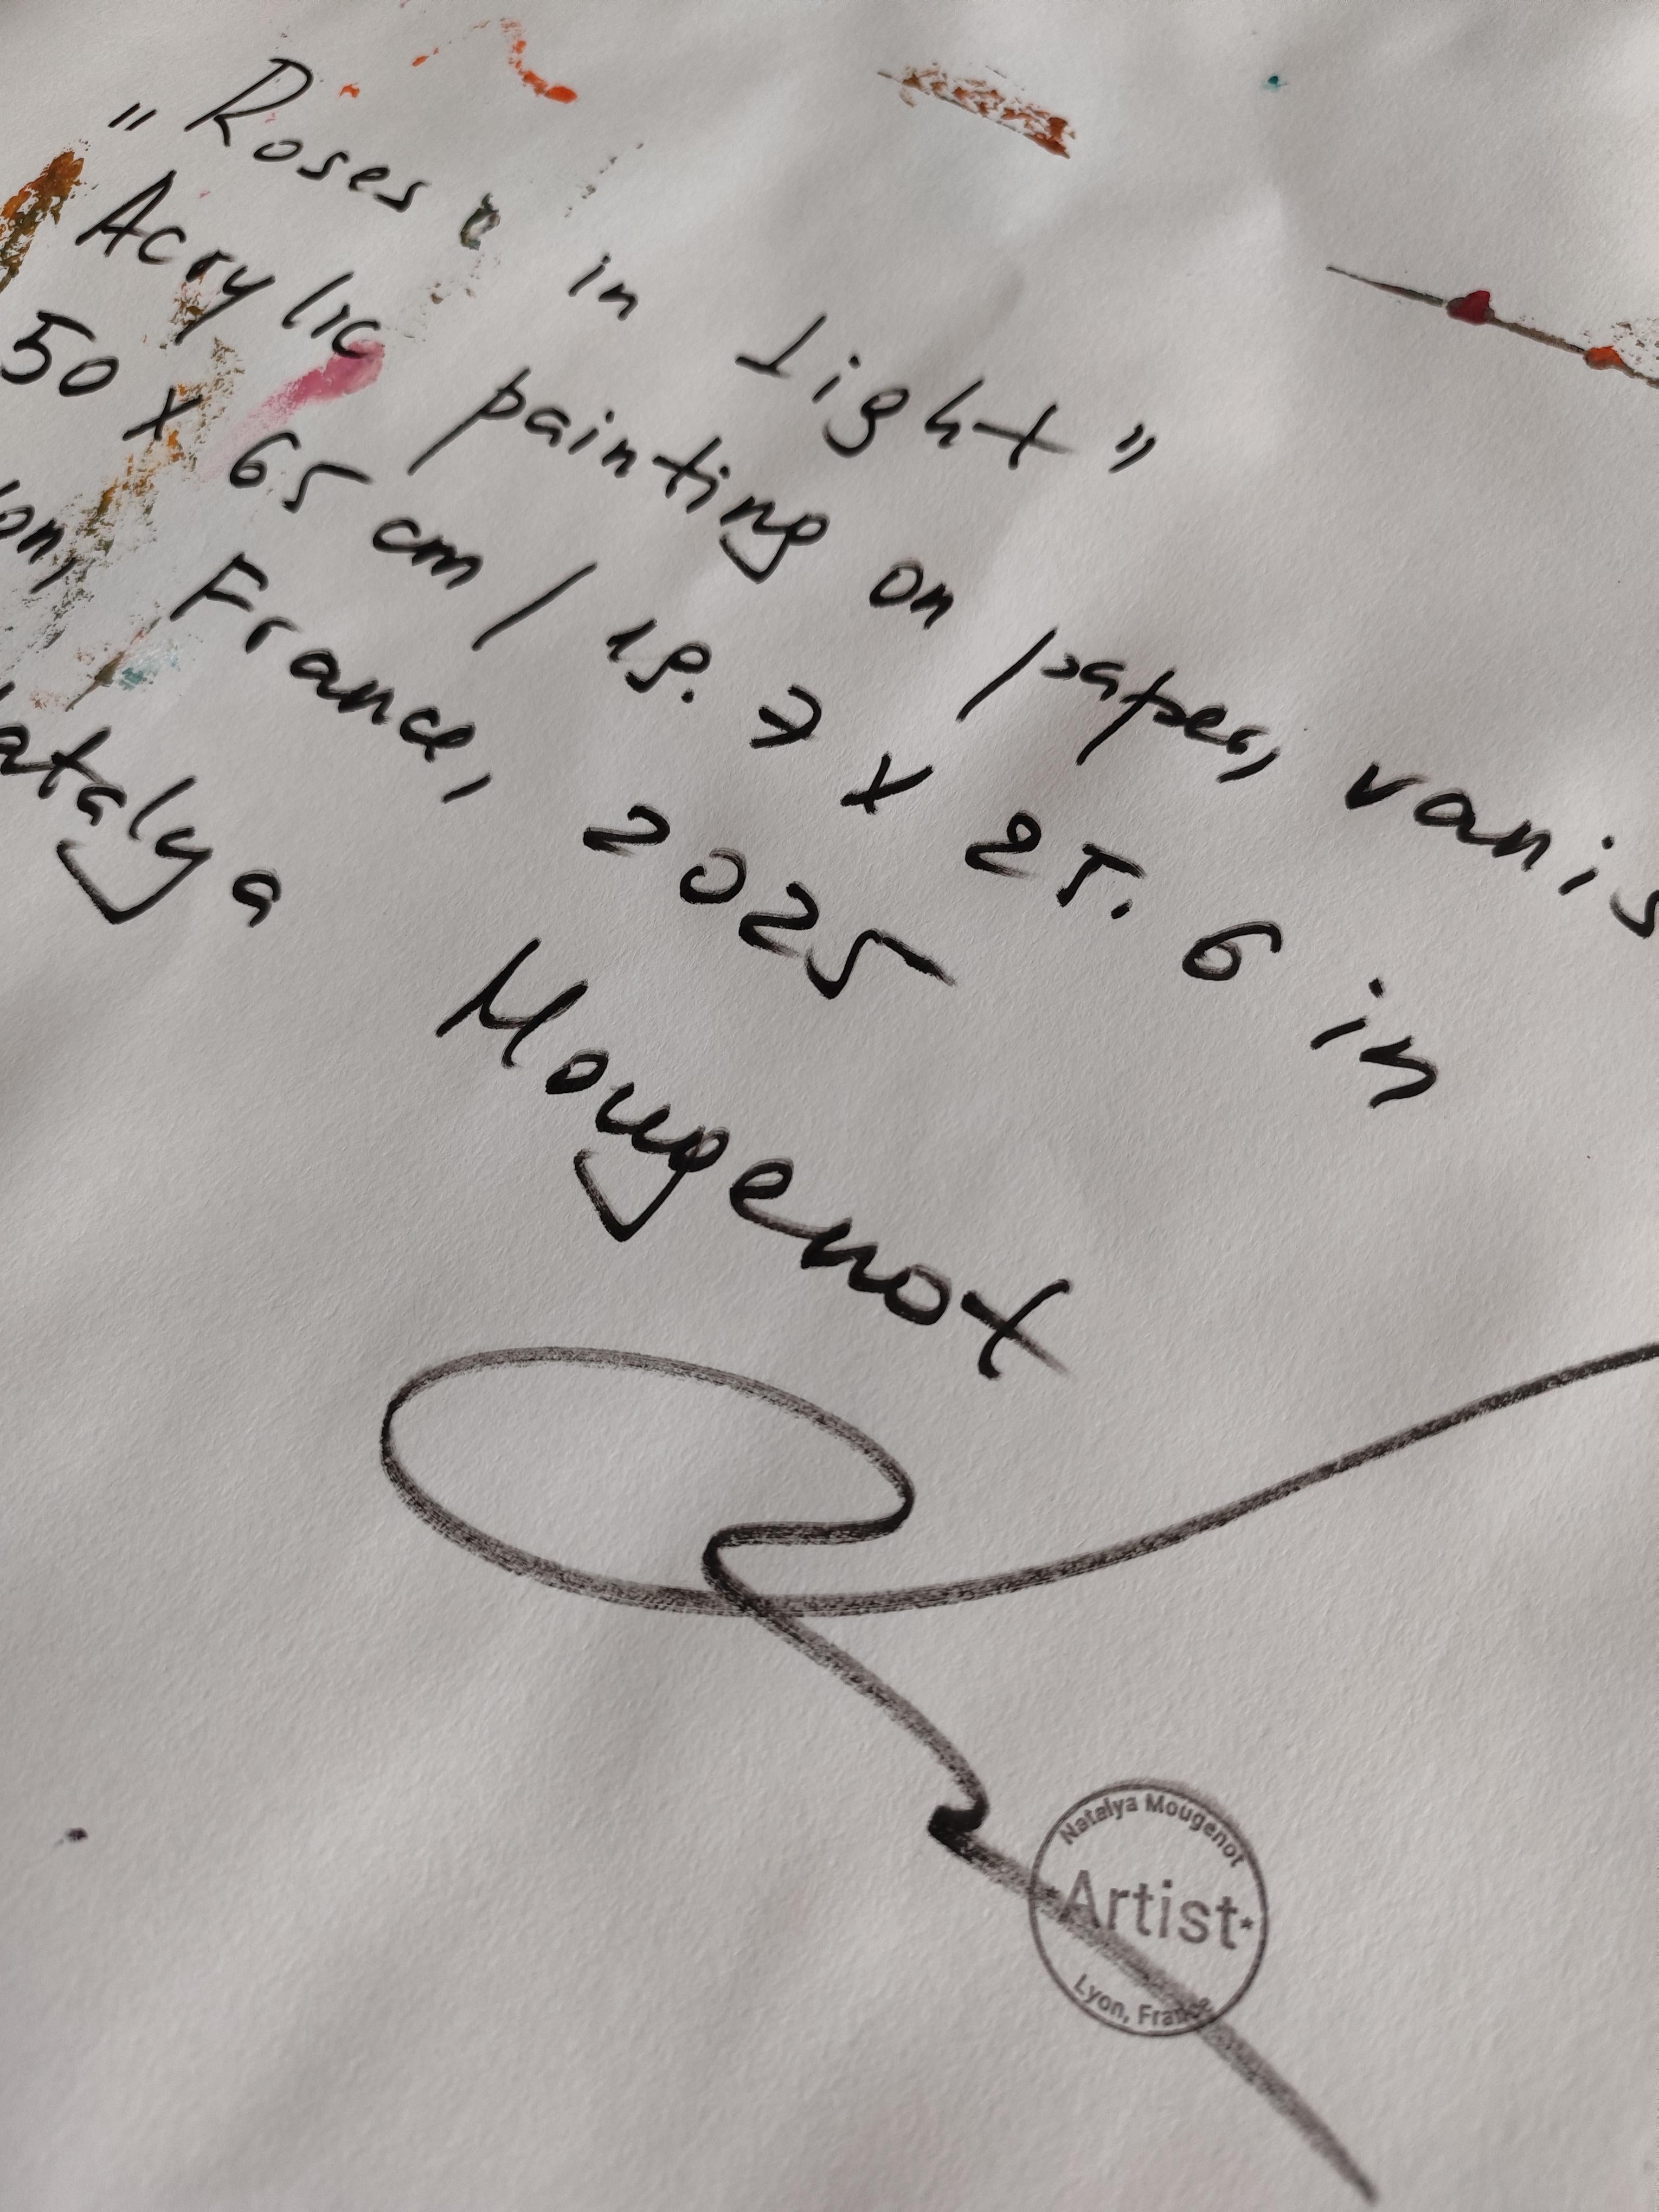 "Roses in Light"
Acrylic painting on paper, vanis
50 x 65 cm / 19.7 x 25.6 in
on, France, 2025
atalya Mougenot
Natalya Mougenot
Artist
Lyon, France